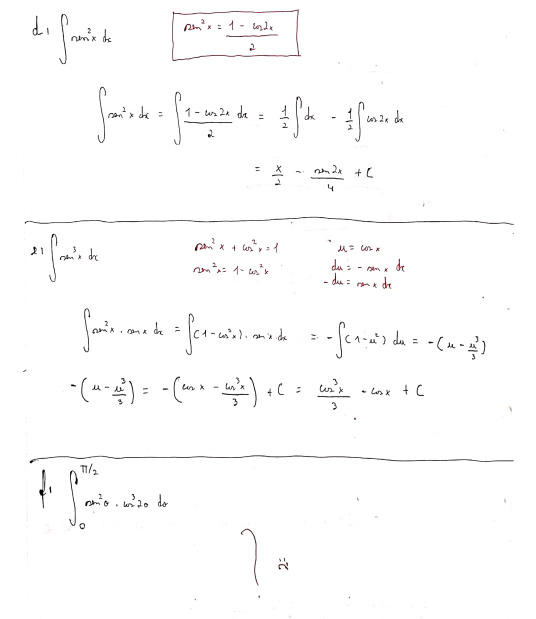 d) ∫ sen²x dx    sen²x = (1 - cos2x)/2
∫ sen²x dx = ∫ (1 - cos2x)/2 dx = 1/2 ∫ dx - 1/2 ∫ cos2x dx
= x/2 - sen2x/4 + C
e) ∫ sen³x dx    sen²x + cos²x = 1    u = cosx
sen²x = 1 - cos²x    du = - senx dx
- du = senx dx
∫ sen²x . senx dx = ∫ (1 - cos²x) . senx dx = - ∫ (1 - u²) du = - (u - u³/3)
- (u - u³/3) = - (cosx - cos³x/3) + C = cos³x/3 - cosx + C
f) ∫₀^(π/2) sen²θ . cos³2θ dθ